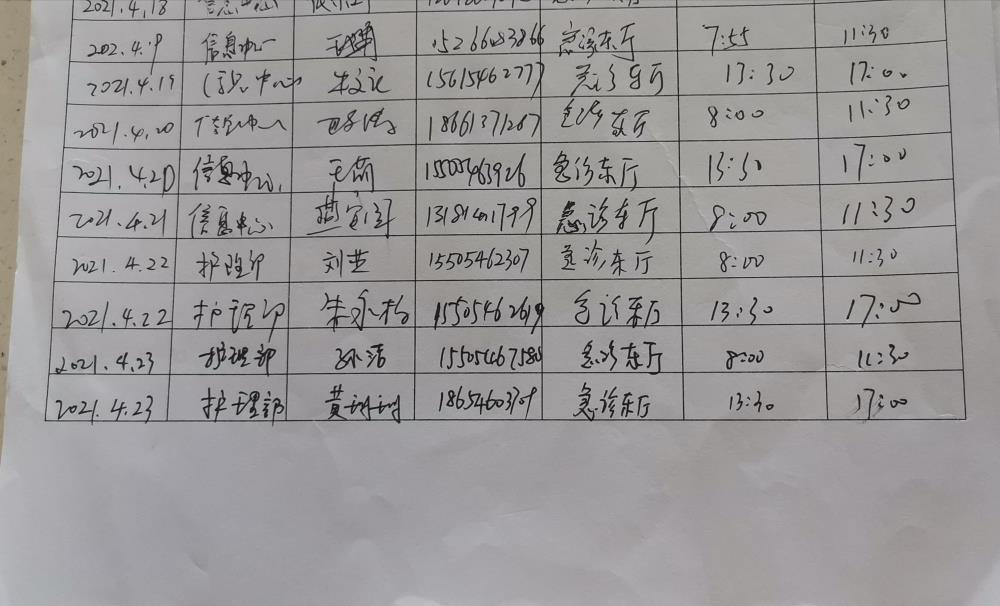 2021.4.18
202.4.19 信息中心 15266083866 急诊东厅 7:55 11:30
2021.4.19 信息中心 15615462777 急诊东厅 13:30 17:00
2021.4.20 信息中心 18661371267 急诊东厅 8:00 11:30
2021.4.20 信息中心 王茹 15505463926 急诊东厅 13:30 17:00
2021.4.21 信息中心 急诊东厅 8:00 11:30
2021.4.22 护理部 刘芸 15505462307 急诊东厅 8:00 11:30
2021.4.22 护理部 朱永梅 15505462619 急诊东厅 13:30 17:00
2021.4.23 护理部 孙洁 15505467580 急诊东厅 8:00 11:30
2021.4.23 护理部 黄珊珊 18654603709 急诊东厅 13:30 17:00